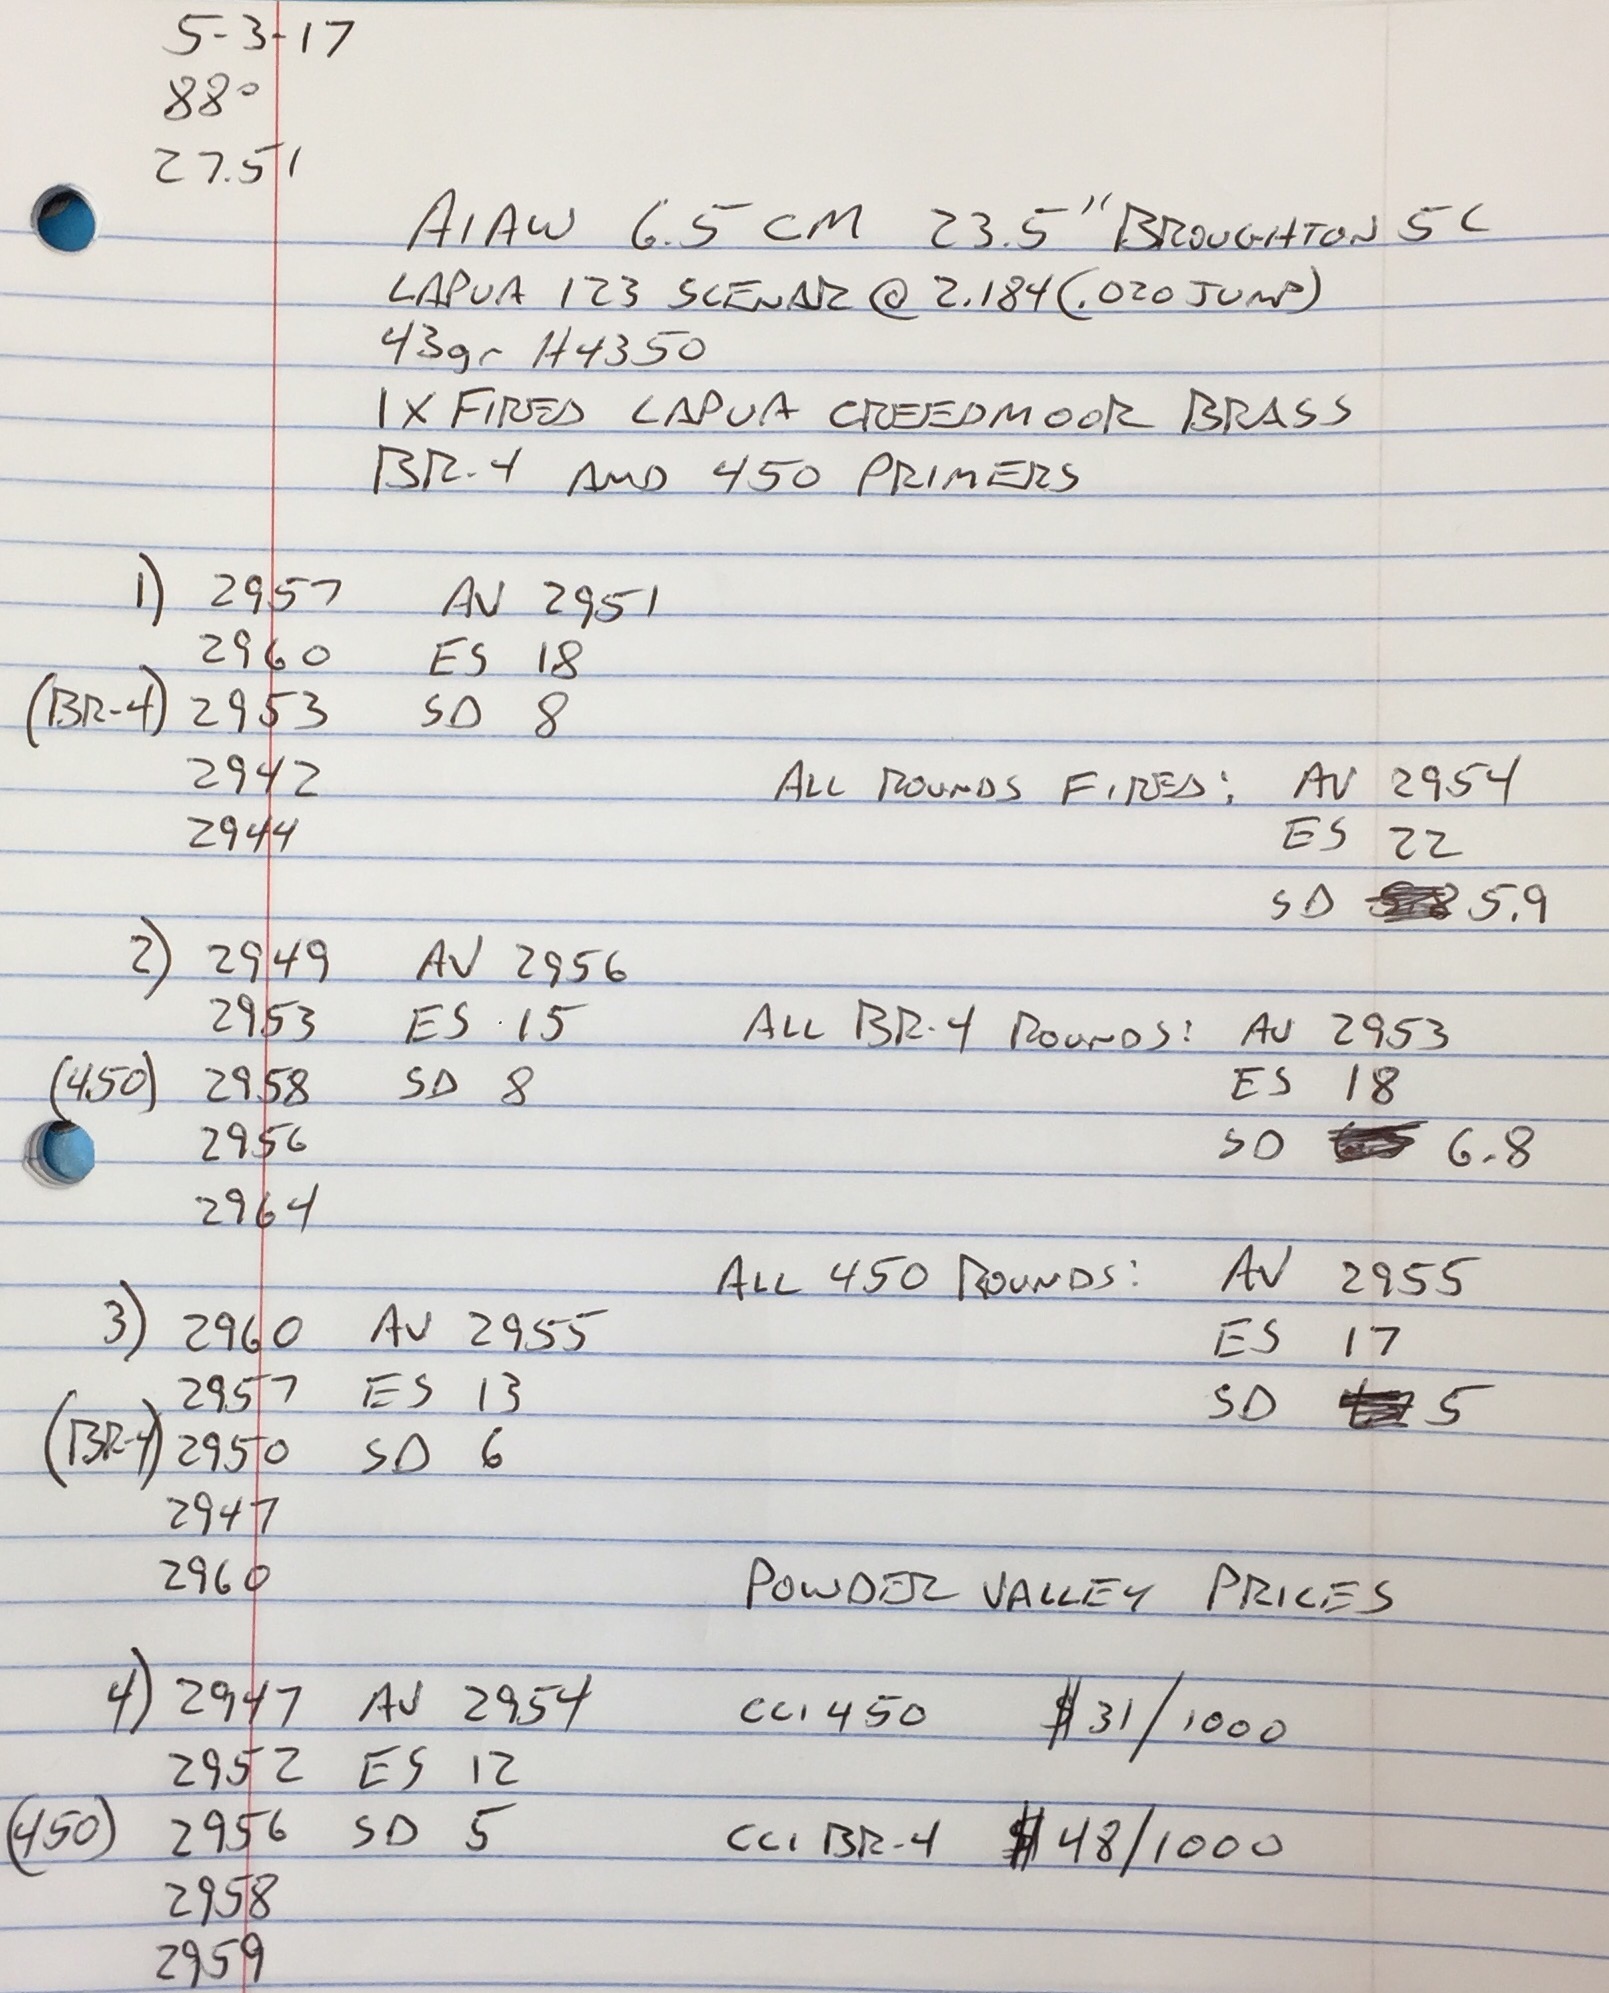 5-3-17
88°
27.51
AIAW 6.5 CM 23.5" BROUGHTON 5C
LAPUA 123 SCENAR @ 2.184 (.020 JUMP)
43gr H4350
1X FIRED LAPUA CREEDMOOR BRASS
BR-4 AND 450 PRIMERS
1) 2957 AV 2951
2960 ES 18
(BR-4) 2953 SD 8
2942 ALL ROUNDS FIRED: AV 2954
2944 ES 22
SD 5.9
2) 2949 AV 2956
2953 ES 15 ALL BR-4 ROUNDS: AV 2953
(450) 2958 SD 8 ES 18
2956 SD 6.8
2964
ALL 450 ROUNDS: AV 2955
3) 2960 AV 2955 ES 17
2957 ES 13 SD 5
(BR-4) 2950 SD 6
2947
2960 POWDER VALLEY PRICES
4) 2947 AV 2954 CCI 450 $31/1000
2952 ES 12
(450) 2956 SD 5 CCI BR-4 $48/1000
2958
2959